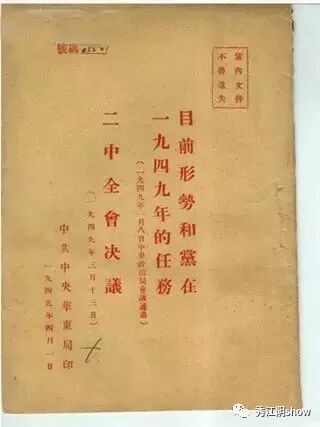 號碼 05501
黨內文件
不得遺失
目前形勢和黨在
一九四九年的任務
(一九四九年一月八日中央政治局會議通過)
二中全會決議
(一九四九年三月十三日)
中共中央華東局印
一九四九年四月一日
秀江阴show